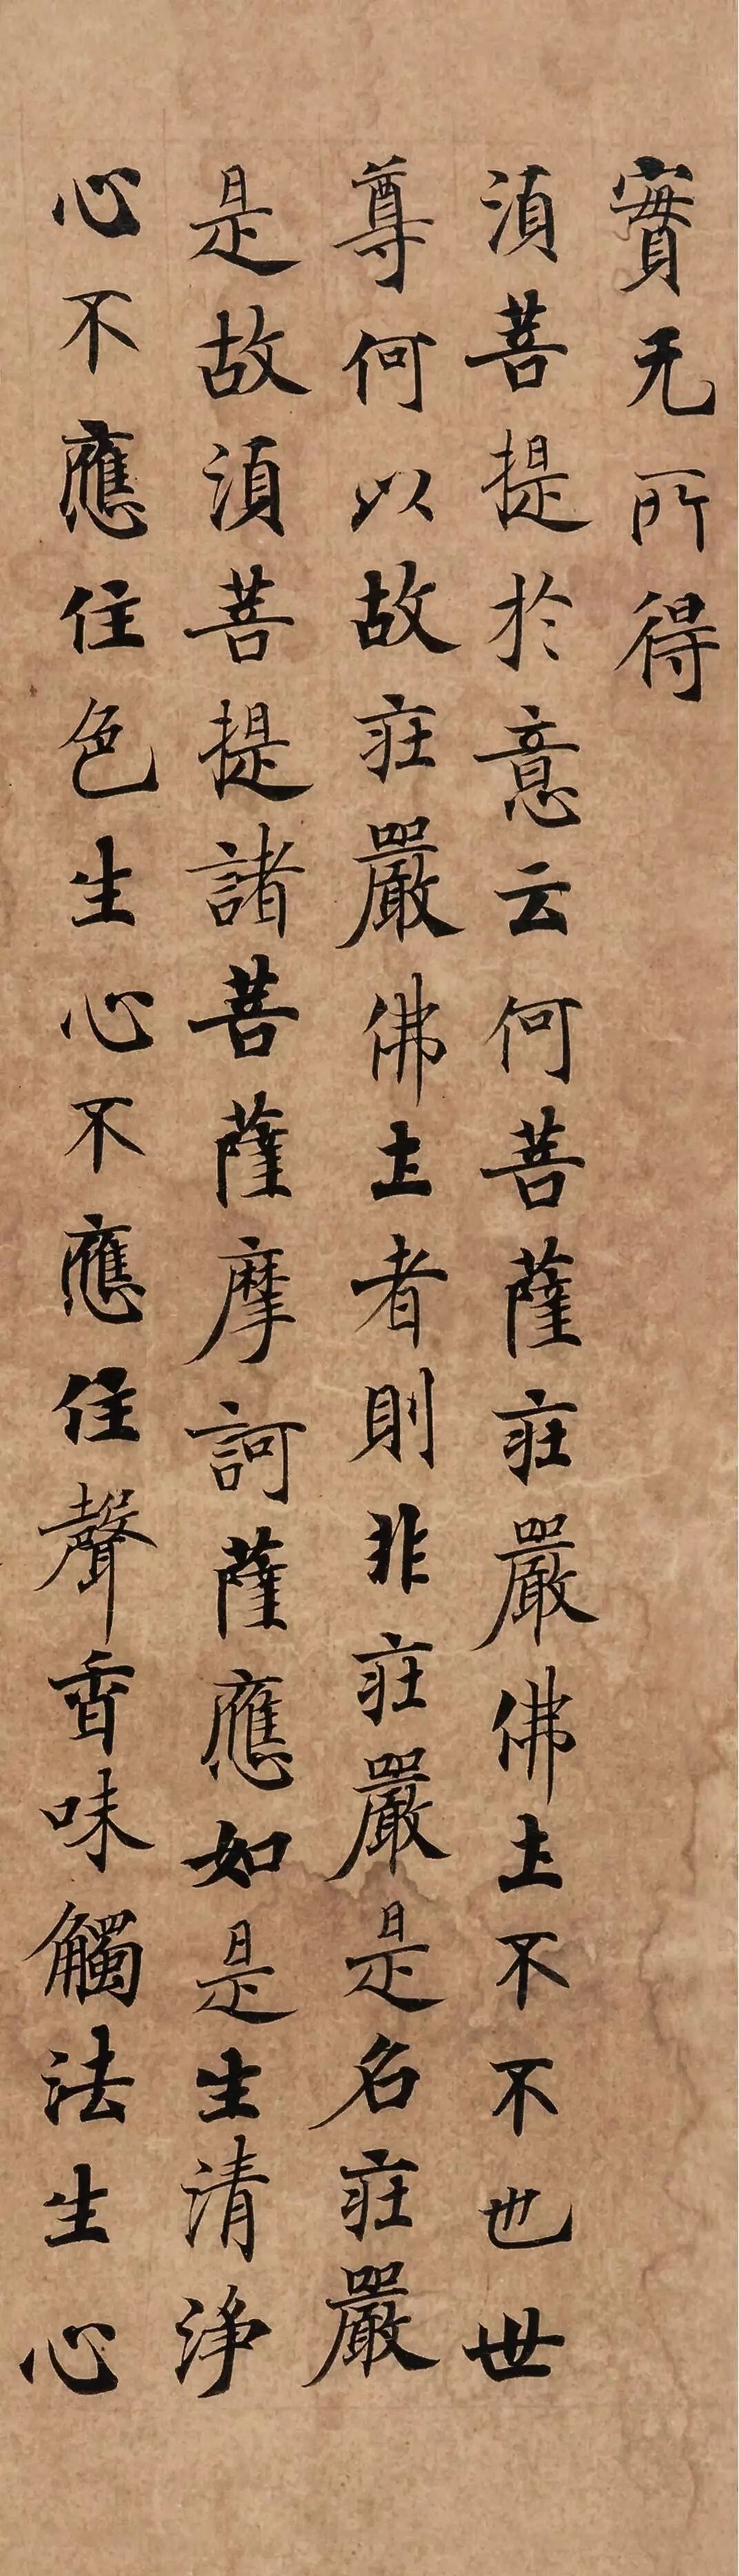 實无所得
湏菩提於意云何菩薩莊嚴佛土不不也世
尊何以故莊嚴佛土者則非莊嚴是名莊嚴
是故湏菩提諸菩薩摩訶薩應如是生清淨
心不應住色生心不應住聲香味觸法生心